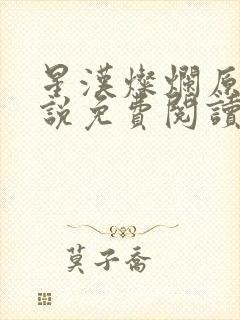 星漢燦爛原
說免費閱讀
莫子喬